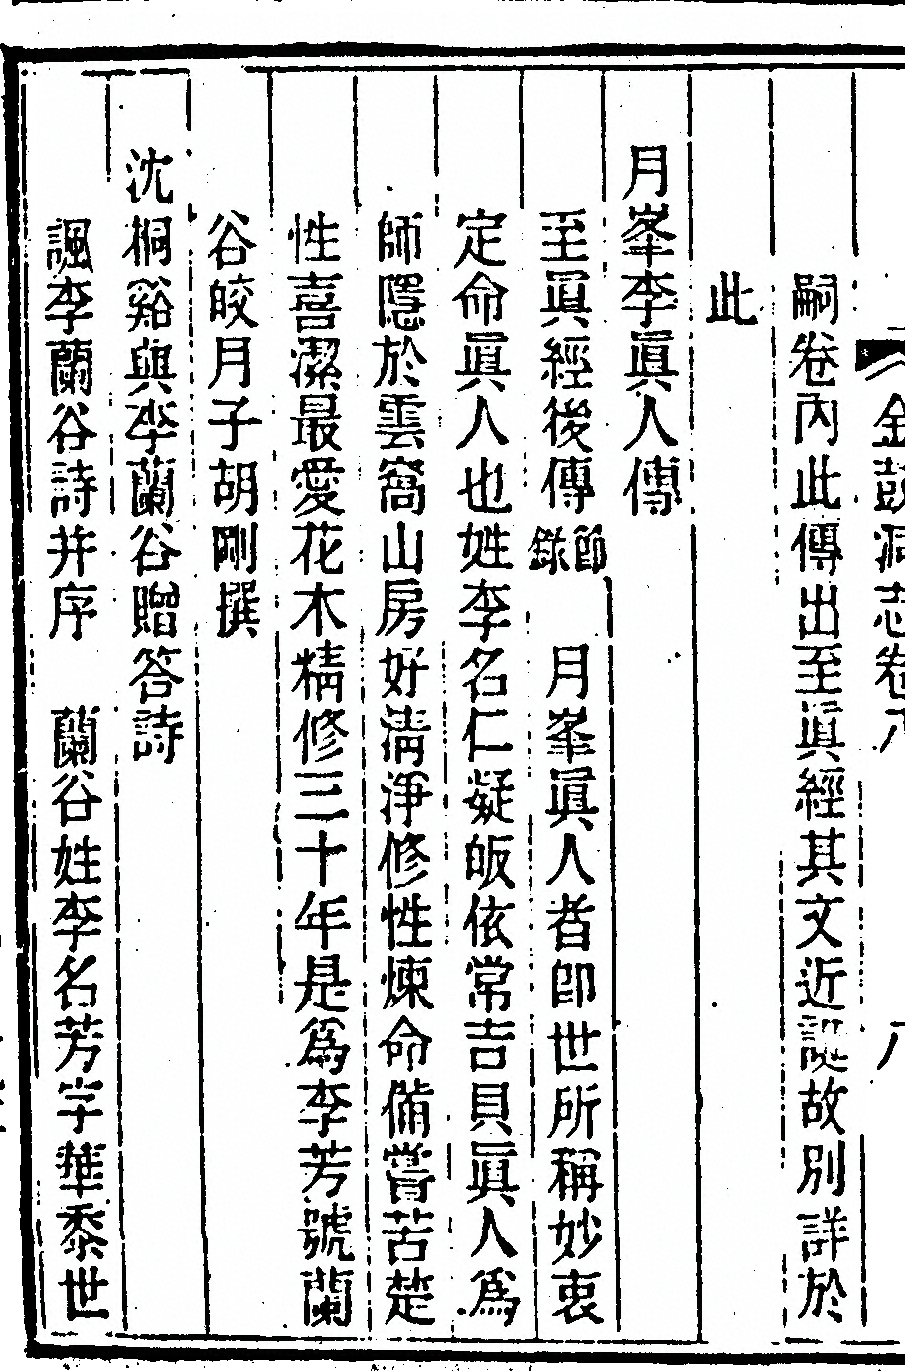 金鼓洞志卷八 八
嗣卷內此傳出至眞經其文近誕故別詳於
此
月峯李眞人傳
至眞經後傳節錄 月峯眞人者卽世所稱妙衷
定命眞人也姓李名仁凝皈依常吉貝眞人爲
師隱於雲窩山房好淸淨修性煉命備嘗苦楚
性喜潔最愛花木精修三十年是爲李芳號蘭
谷皎月子胡剛撰
沈桐谿與李蘭谷贈答詩
諷李蘭谷詩幷序 蘭谷姓李名芳字華黍世